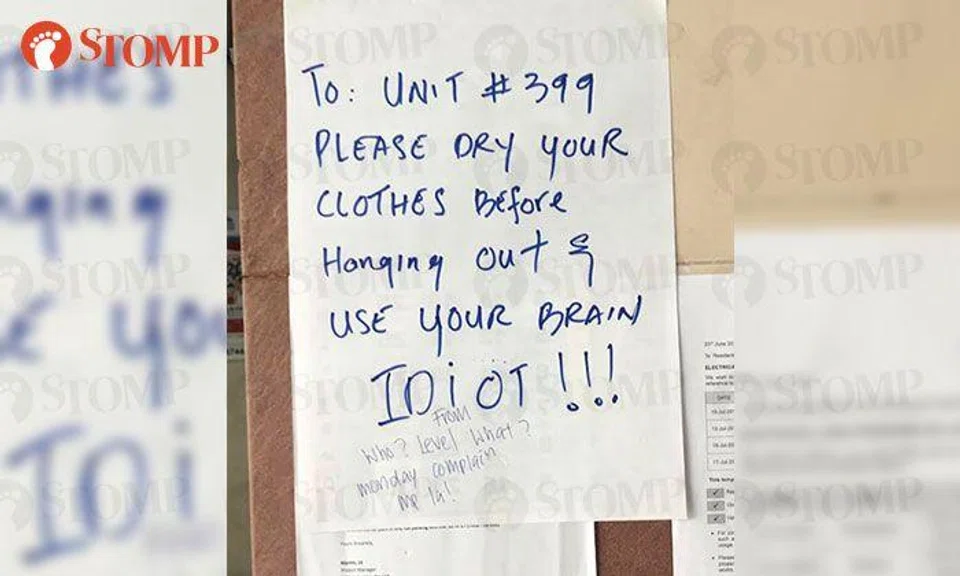 STOMP
To: UNIT #399
PLEASE DRY YOUR
CLOTHES Before
Hanging out &
USE YOUR BRAIN
IDiOT !!!
From
Who? Level What?
monday complain
mp la!
Yours sincerely,